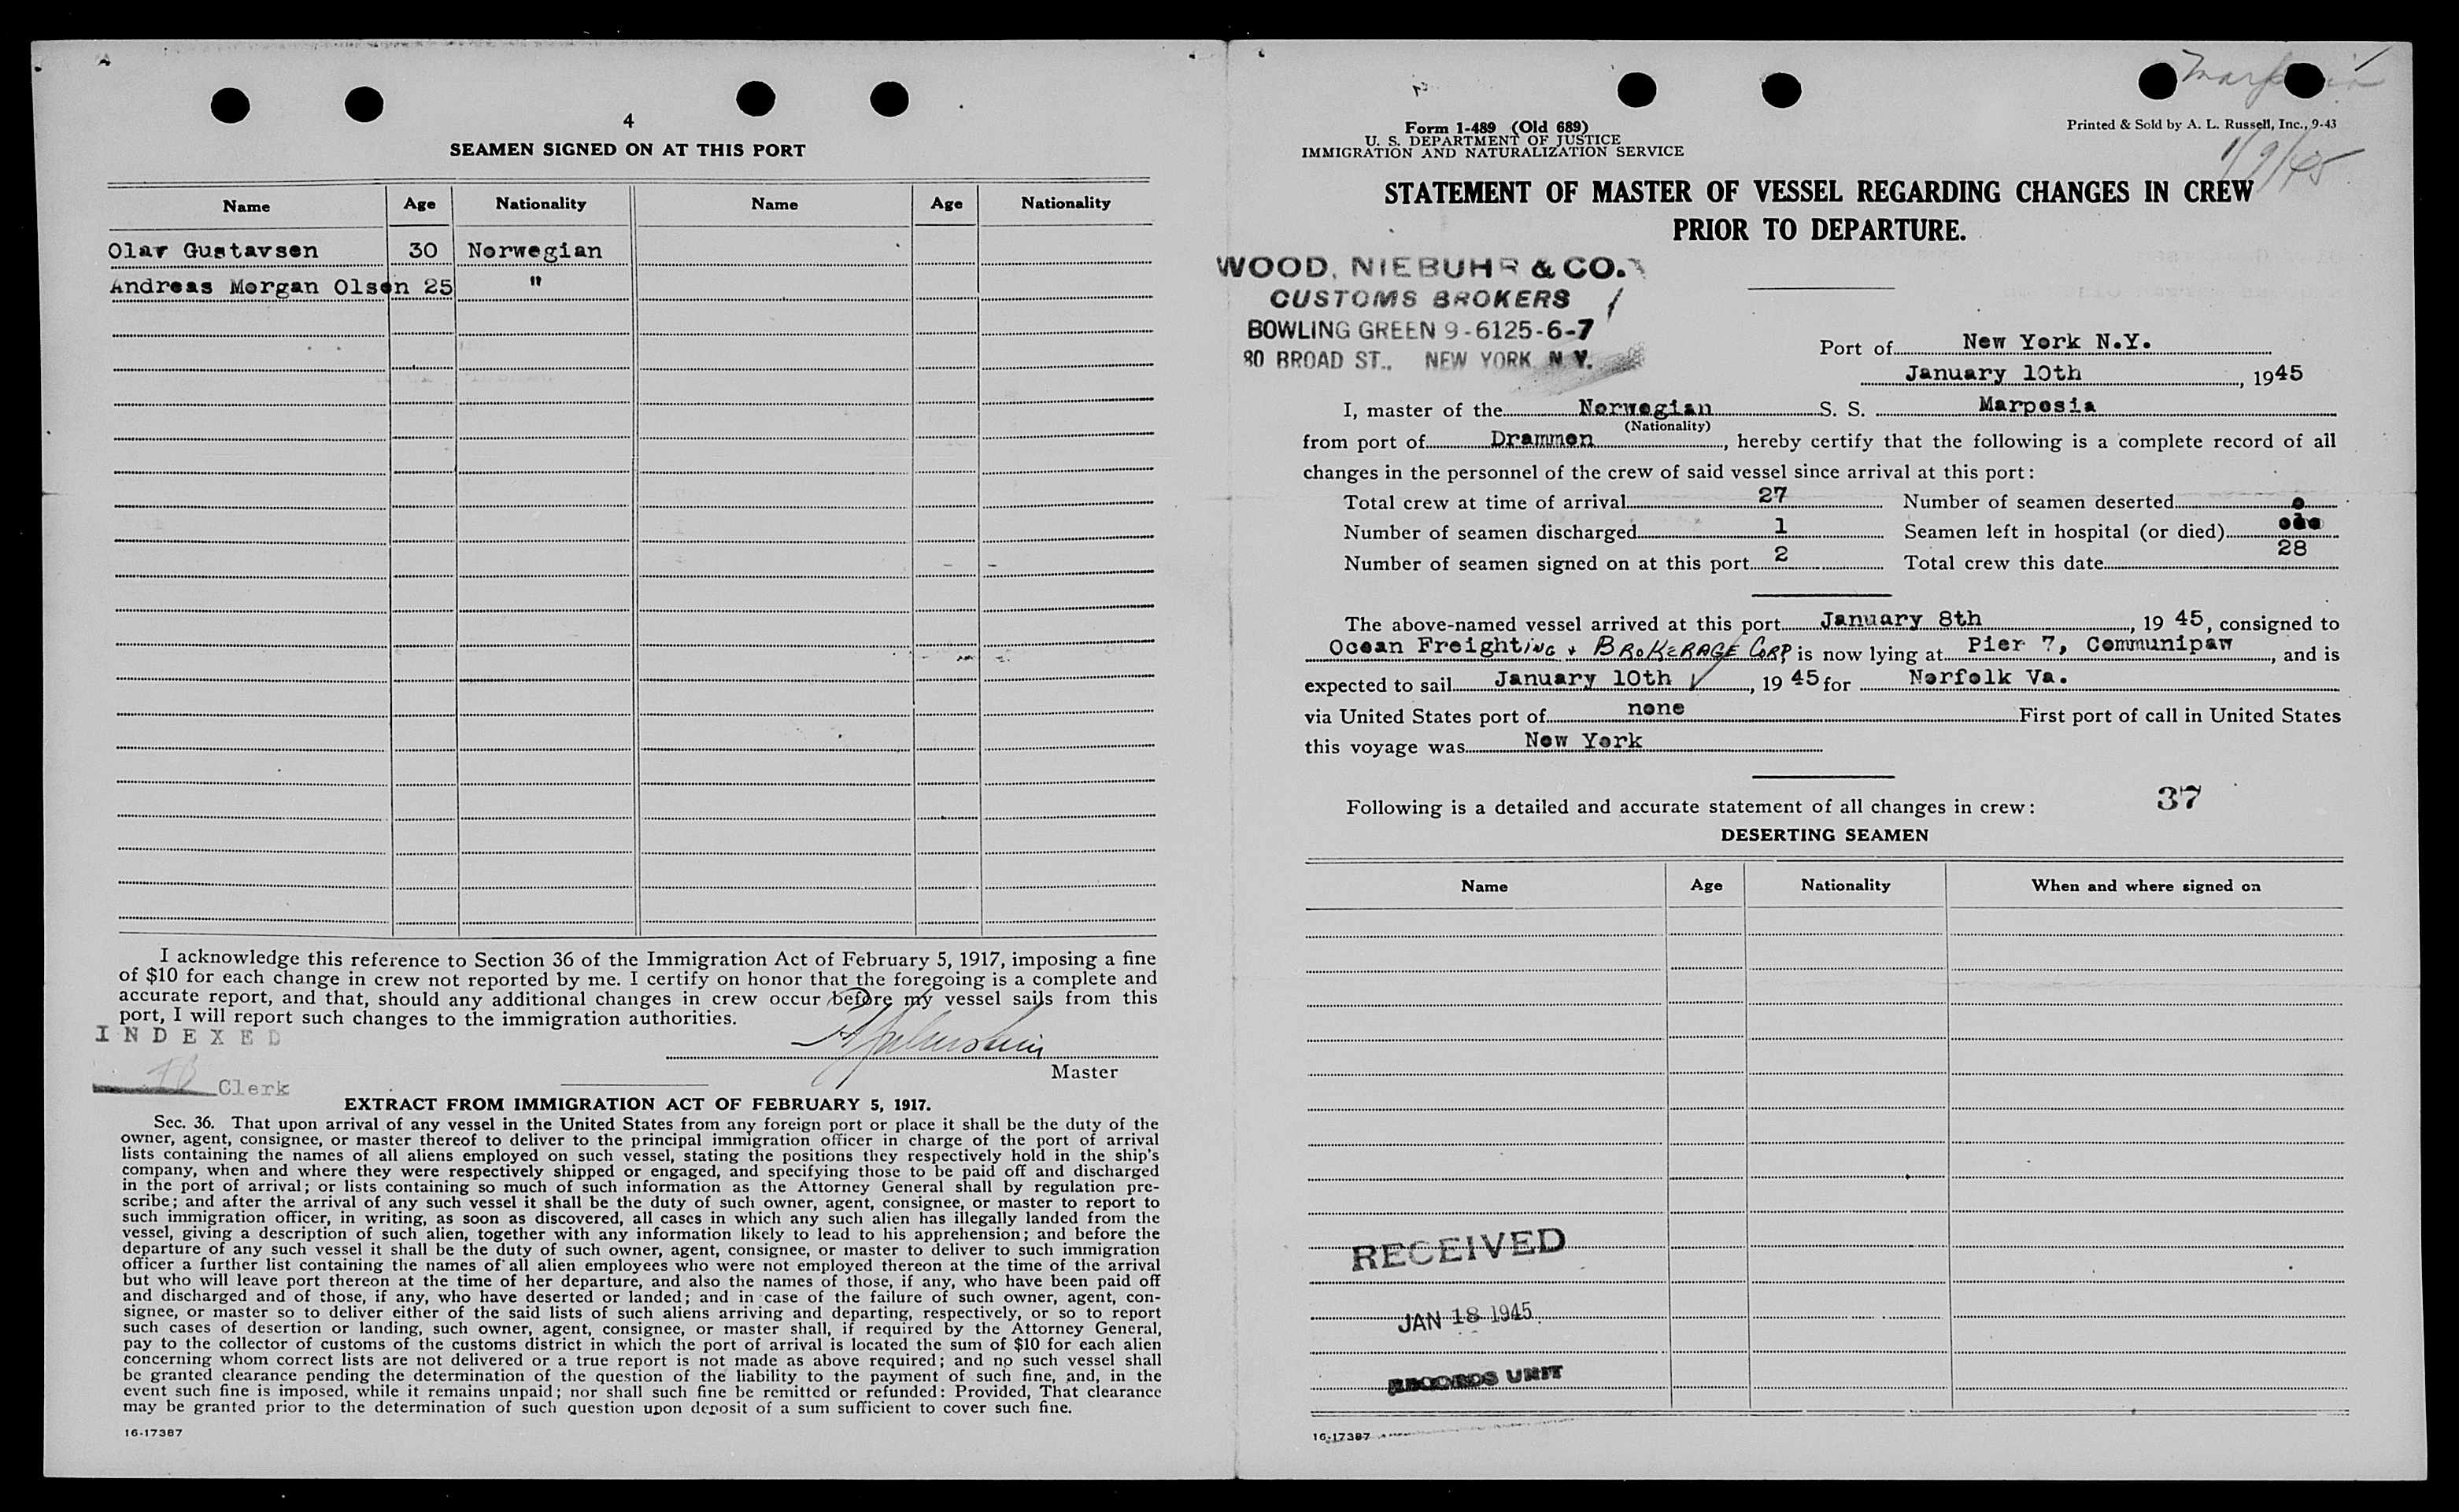 4
SEAMEN SIGNED ON AT THIS PORT
Name Age Nationality Name Age Nationality
Olav Gustavsen 30 Norwegian
Andreas Morgan Olsen 25 "
I acknowledge this reference to Section 36 of the Immigration Act of February 5, 1917, imposing a fine
of $10 for each change in crew not reported by me. I certify on honor that the foregoing is a complete and
accurate report, and that, should any additional changes in crew occur before my vessel sails from this
port, I will report such changes to the immigration authorities.
INDEXED
Master
Clerk
EXTRACT FROM IMMIGRATION ACT OF FEBRUARY 5, 1917.
Sec. 36. That upon arrival of any vessel in the United States from any foreign port or place it shall be the duty of the
owner, agent, consignee, or master thereof to deliver to the principal immigration officer in charge of the port of arrival
lists containing the names of all aliens employed on such vessel, stating the positions they respectively hold in the ship's
company, when and where they were respectively shipped or engaged, and specifying those to be paid off and discharged
in the port of arrival; or lists containing so much of such information as the Attorney General shall by regulation pre-
scribe; and after the arrival of any such vessel it shall be the duty of such owner, agent, consignee, or master to report to
such immigration officer, in writing, as soon as discovered, all cases in which any such alien has illegally landed from the
vessel, giving a description of such alien, together with any information likely to lead to his apprehension; and before the
departure of any such vessel it shall be the duty of such owner, agent, consignee, or master to deliver to such immigration
officer a further list containing the names of all alien employees who were not employed thereon at the time of the arrival
but who will leave port thereon at the time of her departure, and also the names of those, if any, who have been paid off
and discharged and of those, if any, who have deserted or landed; and in case of the failure of such owner, agent, con-
signee, or master so to deliver either of the said lists of such aliens arriving and departing, respectively, or so to report
such cases of desertion or landing, such owner, agent, consignee, or master shall, if required by the Attorney General,
pay to the collector of customs of the customs district in which the port of arrival is located the sum of $10 for each alien
concerning whom correct lists are not delivered or a true report is not made as above required; and no such vessel shall
be granted clearance pending the determination of the question of the liability to the payment of such fine, and, in the
event such fine is imposed, while it remains unpaid; nor shall such fine be remitted or refunded: Provided, That clearance
may be granted prior to the determination of such question upon deposit of a sum sufficient to cover such fine.
16-17387
Form 1-489 (Old 689)
U. S. DEPARTMENT OF JUSTICE
IMMIGRATION AND NATURALIZATION SERVICE
Printed & Sold by A. L. Russell, Inc., 9-43
1/9/45
STATEMENT OF MASTER OF VESSEL REGARDING CHANGES IN CREW
PRIOR TO DEPARTURE.
WOOD, NIEBUHR & CO.
CUSTOMS BROKERS
BOWLING GREEN 9-6125-6-7
80 BROAD ST., NEW YORK N.Y.
Port of New York N.Y.
January 10th, 1945
I, master of the Norwegian S. S. Marposia
(Nationality)
from port of Drammen, hereby certify that the following is a complete record of all
changes in the personnel of the crew of said vessel since arrival at this port:
Total crew at time of arrival 27 Number of seamen deserted o
Number of seamen discharged 1 Seamen left in hospital (or died)
Number of seamen signed on at this port 2 Total crew this date 28
The above-named vessel arrived at this port January 8th, 19 45, consigned to
Ocean Freighting & BROKERAGE CORP is now lying at Pier 7, Communipaw, and is
expected to sail January 10th, 19 45 for Norfolk Va.
via United States port of none First port of call in United States
this voyage was New York
Following is a detailed and accurate statement of all changes in crew: 37
DESERTING SEAMEN
Name Age Nationality When and where signed on
RECEIVED
JAN 18 1945
RECORDS UNIT
16-17387